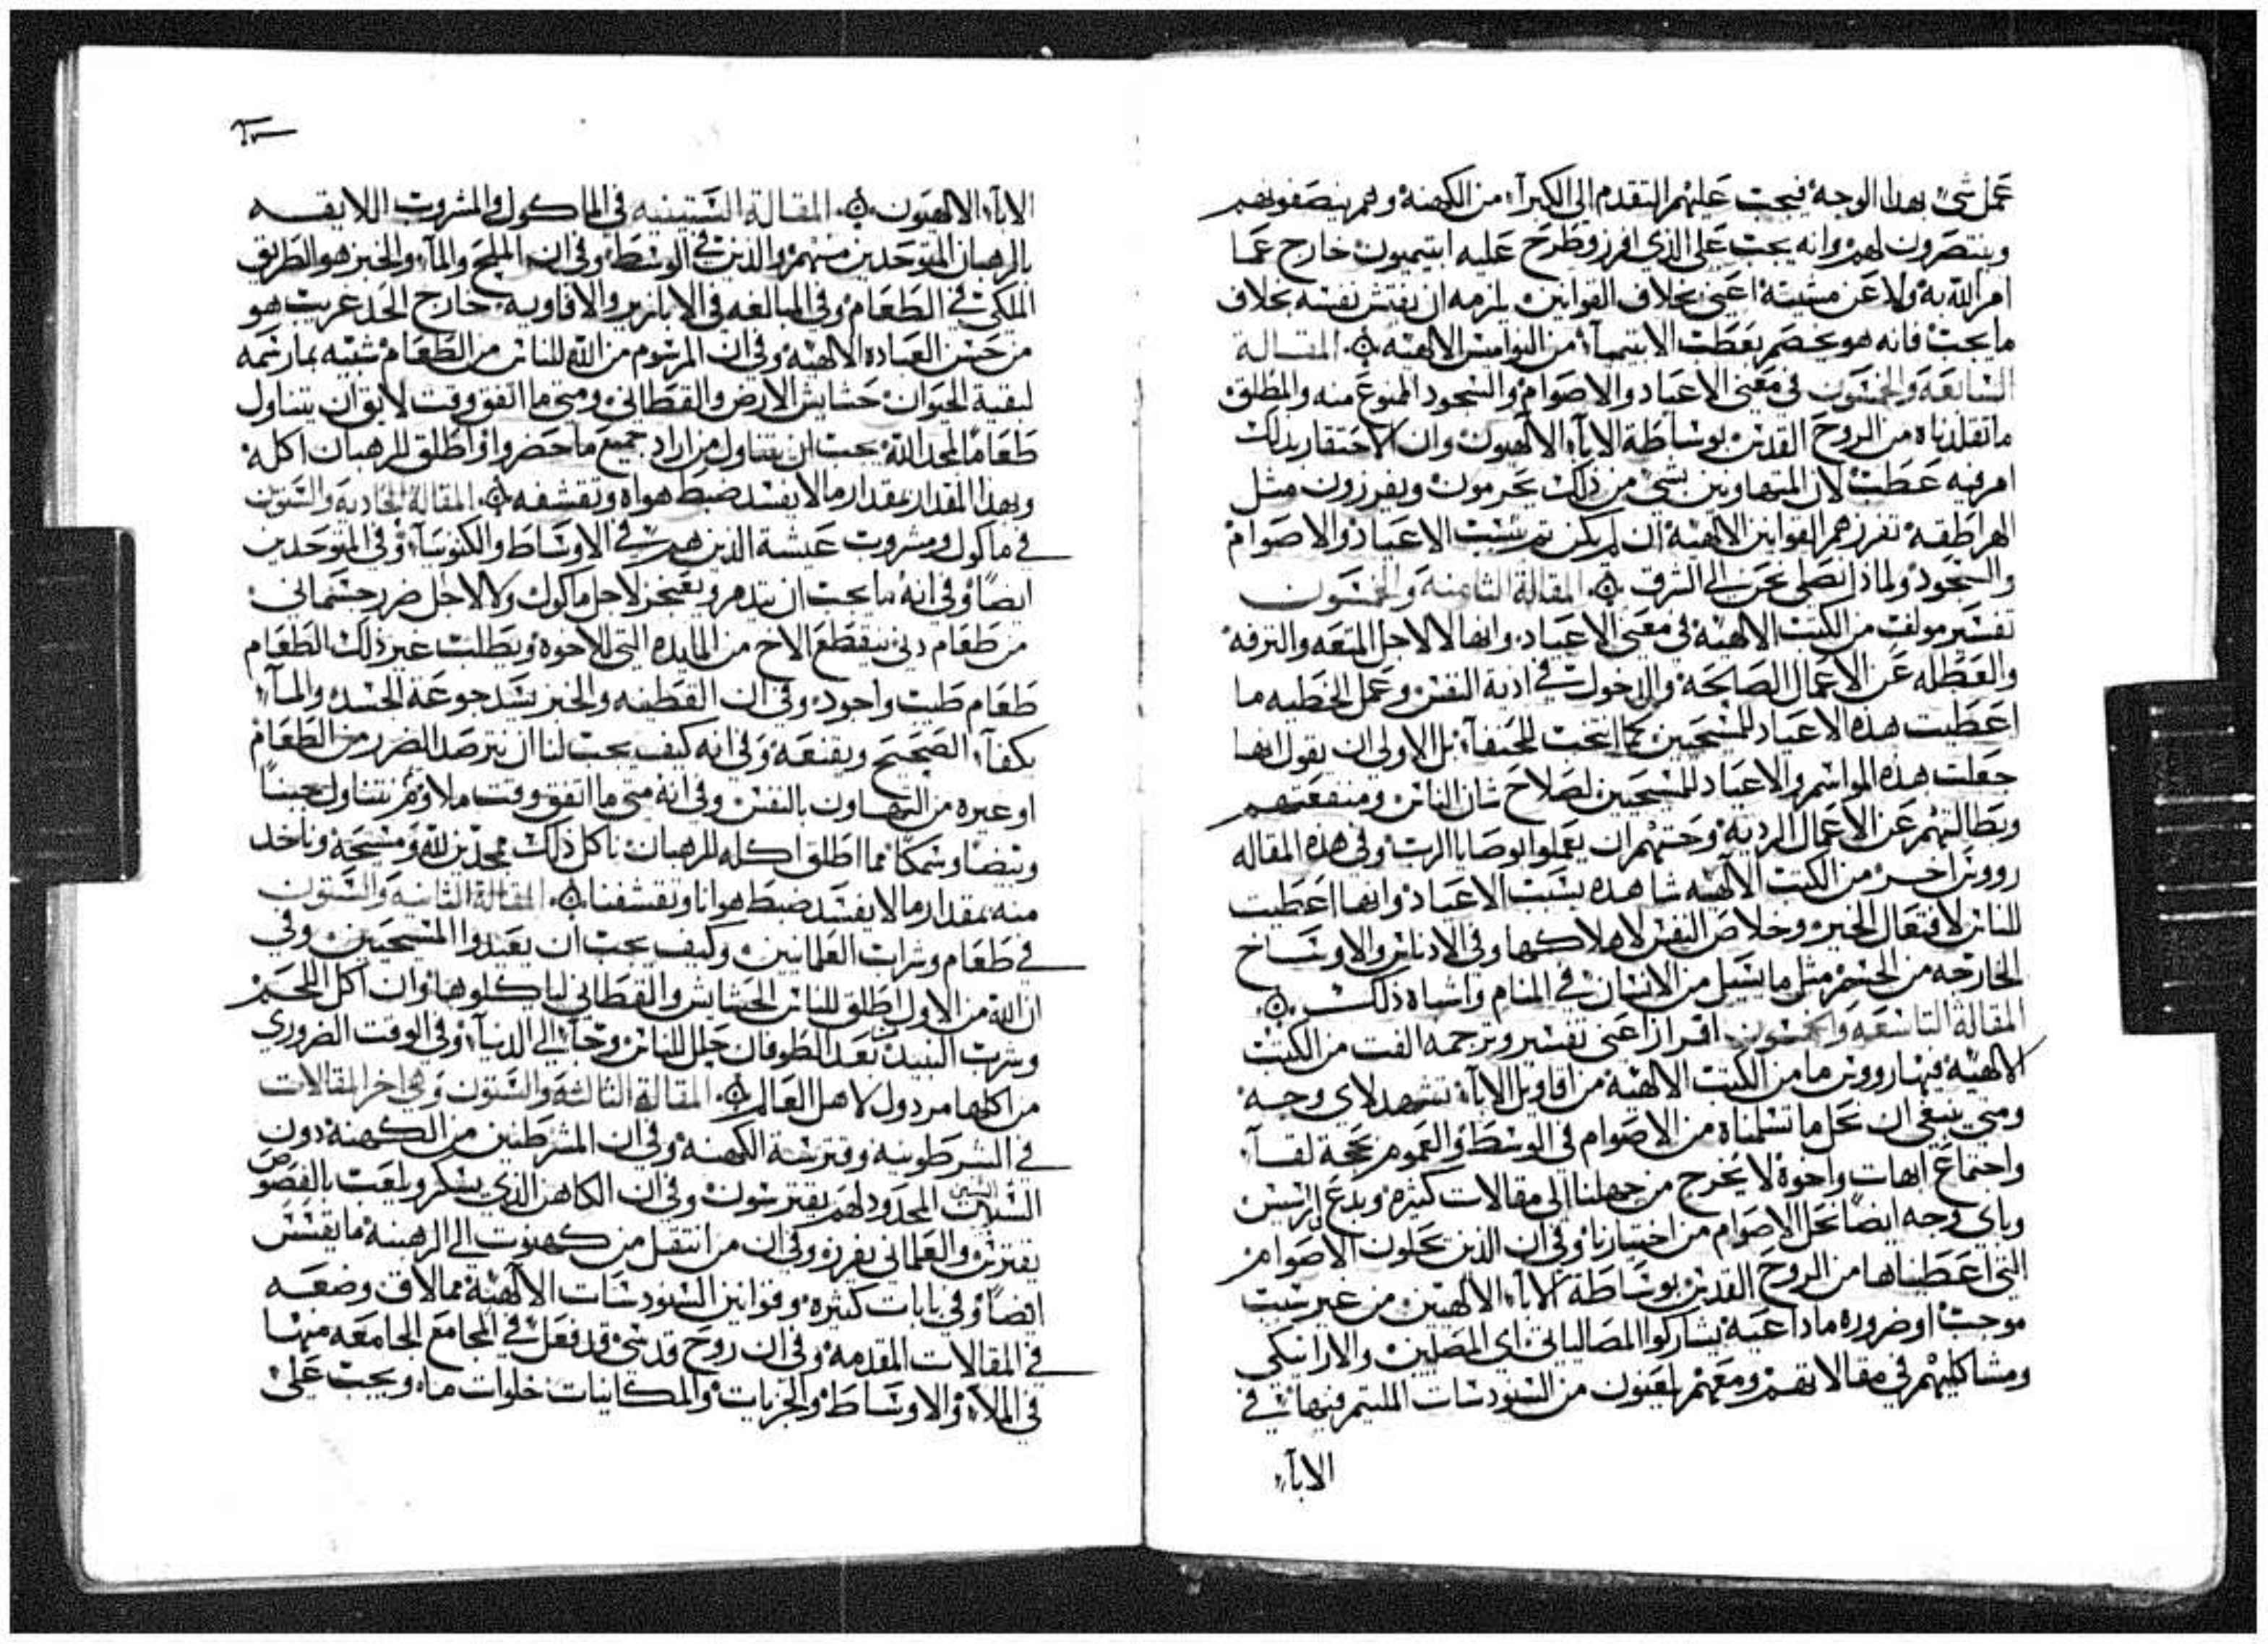 عمل شئ بهذا الوجه فيجب عليهم التقدم الى الكبرآء من الكهنة وهم ينصفونهم
وينتصرون لهم وانه يجب على الذي افرز وطرح عليه ابتيميون خارج عما
امر الله به ولا عن مشيته اعني بخلاف القوانين يلزمه ان يفتش نفسه بخلاف
ما يجب فانه هو يخصم بعطب الابتيميآء من النواميس الالهيه المقالة
السابعة والخمسون في معنى الاعياد والاصوام والسجود الممنوع منه والمطلق
ما تقلدناه من الروح القدس بوساطة الابآء الالهيون وان الاحتقار بذلك
امر فيه عطب لان المتهاونين بشي من ذلك يحرمون ويفرزون مثل
الهراطقه تفرزهم القوانين الالهية ان لم يكن ثم سبب الاعياد والاصوام
والسجود ولماذا نصلي نحن الى الشرق المقالة الثامنة والخمسون
تفسير مولف من الكتب الالهيه في معنى الاعياد وانها لا لاجل المتعه والترفه
والعطله عن الاعمال الصالحة والدخول في اذية النفس وعمل الخطيه ما
اعطيت هذه الاعياد للمسيحيين كما انتخب للحنفآء بل الاولى ان يقول انها
جعلت هذه المواسم والاعياد للمسيحيين لصلاح شان الناس ومنفعتهم
وبطالتهم عن الاعمال الرديه وحثهم ان يعملوا بوصايا الرب وفي هذه المقاله
رووس اخر من الكتب الالهيه شاهده بسبب الاعياد وانها اعطيت
للناس لافتعال الخير وخلاص النفس لا هلاكها وفي الادناس والاوساخ
الخارجه من الجسم مثل ما يسيل من الانسان في المنام واشباه ذلك
المقالة التاسعه والخمسون اقرار اعني تفسير وترجمه الفت من الكتب
الالهيه فيها رووس ما من الكتب الالهية من اقاويل الابآء تشهد لاي وجه
ومتى ينبغي ان نحل ما تسلمناه من الاصوام في الوسط والعموم بحجة لقآء
واجتماع ابهات واخوة لا يخرج من جهلنا الى مقالات كثيره وبدع اراسيس
وباي وجه ايضا نحل الاصوام من اختيارنا وفي ان الذين يحلون الاصوام
التي اعطيناها من الروح القدس بوساطة الابآء الالهيين من غير سبب
موجب او ضروره ماداعيه يشاركوا المصاليانى اى المصلين والارانيكى
ومشاكليهم في مقالاتهم ومعهم يلعنون من السنودسات الملتيم فيها في
الابآء
الابآء الالهيون المقالة الستينيه في الماكول والمشروب اللايقه
بالرهبان المتوحدين منهم والذين في الوسط وفي ان الملح والمآء والخبز هو الطريق
الملكي في الطعام وفي المبالغه في الابازير والافاويه خارج الحد غريب هو
من حسن العباده الالهيه وفي ان المرسوم من الله للناس من الطعام شبيه بما رسمه
لبقية الحيوان حشايش الارض والقطاني ومتى ما اتفق وقت لايق ان يتناول
طعاما لمجد الله يجب ان يتناول من اراد جميع ما حضر واطلق للرهبان اكله
وبهذا المقدار بمقدار ما لا يفسد ضبط هواه وتقشفه المقالة الحادية والستون
في ماكول ومشروب عيشة الذين هم في الاوساط والكنوبيآء وفي المتوحدين
ايضا وفي انه ما يجب ان يتذمر ويضجر لاجل ماكول ولا لاجل ضرر جسماني
من طعام دني ينقطع الاخ من المايده التي للاخوه ويطلب غير ذلك الطعام
طعام طيب واجود وفي ان القطنيه والخبز يسد جوعة الجسد والمآء
يكفآء الصحيح ويقنعه وفي انه كيف يجب لنا ان نترصد الضرر من الطعام
او غيره من التهاون بالنفس وفي انه متى ما اتفق وقت ملاوم نتناول جبنا
وبيضا وسمكا مما اطلق اكله للرهبان ناكل ذلك ممجدين لله ومسيحه وناخذ
منه بمقدار ما لا يفسد ضبط هوانا وتقشفنا المقالة الثانيه والستون
في طعام وشراب العلمانيين وكيف يجب ان يعيدوا المسيحيين وفي
ان الله من الاول اطلق للناس الحشايش والقطاني لياكلوها وان اكل اللحم
وشرب النبيذ بعد الطوفان حلل للناس وجآء الى الدنيآء وفي الوقت الضروري
من اكلها مردول لاهل العالم المقالة الثالثة والستون وهي اخر المقالات
في الشرطونيه وقترسة الكهنة وفي ان المشرطنين من الكهنه دون
السنين المحدود لهم يقترسون وفي ان الكاهن الذي يسكر ويلعب بالفصوص
يقترس والعلماني يفرز وفي ان من انتقل من كهنوت الى الرهبنه ما يقسس
ايضا وفي بابات كثيره وقوانين السنودسات الالهيه مما لاق وضعه
في المقالات المقدمه وفي ان روح قدسي قد فعل في المجامع الجامعه منها
في الملاء والاوساط والجزيات والمكانيات خلوات ما ويجب على